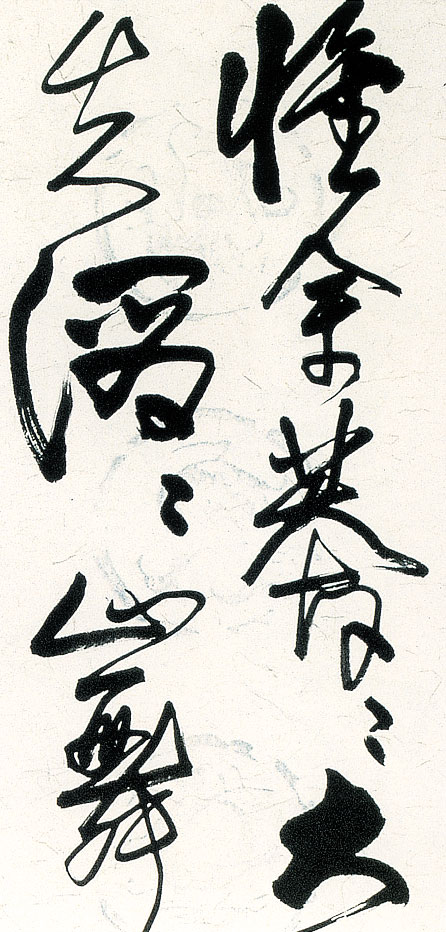 惟余莽〻大
失滔〻山舞